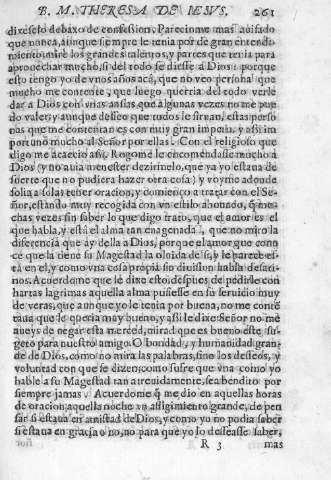 B. M. THERESA DE IESVS. 261
dixeselo debaxo de confession. Pareciome mas auisado
que nunca, aunque siempre le tenia por de gran entendi
miento, mirè los grandes talentos, y partes que tenia para
aprouechar mucho, si del todo se diesse a Dios: porque
esto tengo yo de vnos años acà, que no veo persona que
mucho me contente, que luego querria del todo verle
dar a Dios con vnas ansias que algunas vezes no me pue
do valer; y aunque desseo que todos le siruan, estas perso
nas que me contentan es con muy gran impetu, y assi im
portuno mucho al Señor por ellas. Con el religioso que
digo me acaecio assi. Rogome le encomendasse mucho à
Dios (y no auia menester dezirmelo, que ya yo estaua de
suerte que no pudiera hazer otra cosa) y voyme adonde
solia a solas tener oracion, y comienço a tratar con el Se-
ñor, estando muy recogida con vn estilo abouado, q̃ mu-
chas vezes sin saber lo que digo trato, que el amor es el
que habla, y està el alma tan enagenada, que no miro la
diferencia que ay della a Dios, porque el amor que cono
ce que la tiene su Magestad la oluida de si, y le parece es-
tà en el, y como vna cosa propia sin diuision habla desati-
nos. Acuerdome que le dixe esto despues de pedirle con
hartas lagrimas aquella alma pusiesse en su seruicio muy
de veras, que aunque yo le tenia por bueno, no me conten
taua que le queria muy bueno, y assi le dixe: Señor no me
aueys de negar esta merced, mirad que es bueno este su-
geto para nuestro amigo. O bondad, y humanidad gran-
de de Dios, como no mira las palabras, sino los desseos, y
voluntad con que se dizen, como sufre que vna como yo
hable a su Magestad tan atreuidamente, sea bendito por
siempre jamas. Acuerdome q̃ me dio en aquellas horas
de oracion aquella noche vn afligimiento grande, de pen
sar si estaua en amistad de Dios, y como yo no podia saber
si estaua en gracia o no, no para que yo lo desseasse saber,
R 3 mas